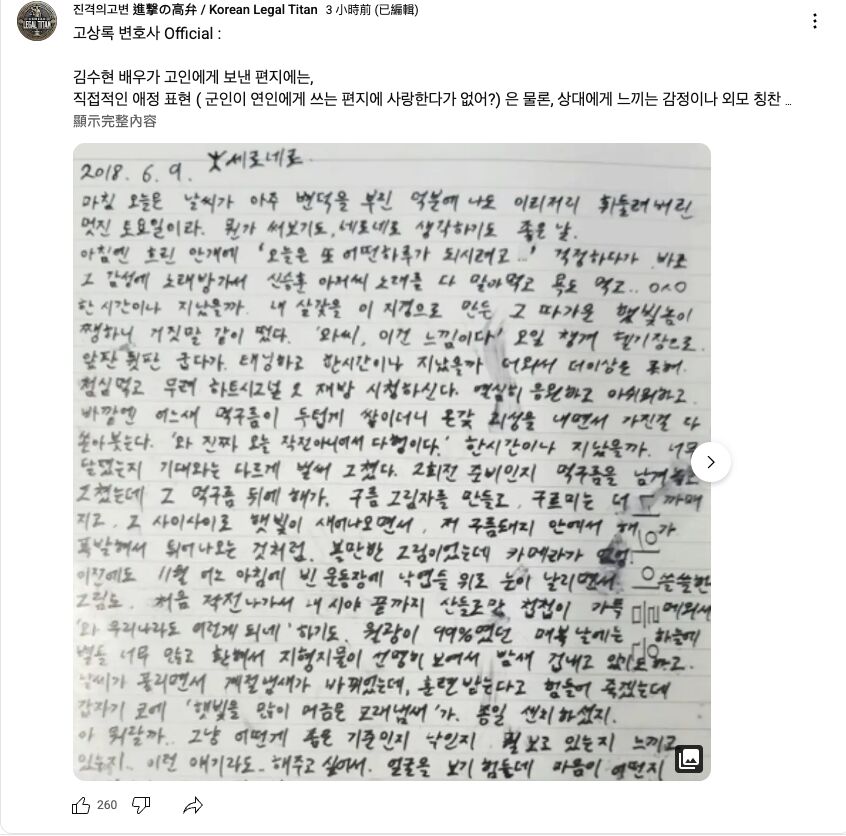 진격의고변 進撃の高弁 / Korean Legal Titan 3 小時前 (已編輯)
고상록 변호사 Official :
김수현 배우가 고인에게 보낸 편지에는,
직접적인 애정 표현 ( 군인이 연인에게 쓰는 편지에 사랑한다가 없어?) 은 물론, 상대에게 느끼는 감정이나 외모 칭찬 ...
顯示完整內容
2018. 6. 9. 세로네로.
마침 오늘은 날씨가 아주 변덕을 부린 덕분에 나도 이리저리 휘둘려버린
멋진 토요일이라. 뭔가 써보기도, 네로네로 생각하기도 좋은 날.
아침엔 흐린 안개에 '오늘은 또 어떤하루가 되시려고...' 걱정하다가 바로
그 감성에 노래방가서 신승훈 아저씨 노래를 다 말아먹고 욕도 먹고.. ㅇㅅㅇ
한 시간이나 지났을까. 내 살갗을 이 지경으로 만든 그 따가운 햇빛놈이
쨍하니 거짓말 같이 떴다. '와씨, 이건 느낌이다' 오일 챙겨 헬기장으로.
앞판 뒷판 굽다가. 태닝하고 한시간이나 지났을까 더워서 더이상은 못해.
점심먹고 무려 하트시그널 2 재방 시청하신다. 열심히 응원하고 아쉬워하고.
바깥엔 어느새 먹구름이 두텁게 쌓이더니 온갖 괴성을 내면서 가진걸 다
쏟아붓는다. '와 진짜 오늘 작전아니여서 다행이다.' 한시간이나 지났을까. 너무
달랬는지 기대와는 다르게 벌써 그쳤다. 2회전 준비인지 먹구름을 남겨놓고
그쳤는데 그 먹구름 뒤에 해가. 구름 그림자를 만들고, 구르미는 더 까매
지고, 그 사이사이로 햇빛이 새어나오면서, 저 구름돼지 안에서 해가
폭발해서 튀어나오는 것처럼. 볼만한 그림이었는데 카메라가 없엉
이전에도 11월 어느 아침에 빈 운동장에 낙엽들 위로 눈이 날리면서 쓸쓸한
그림도. 처음 작전나가서 내 시야 끝까지 산들로만 첩첩이 가득 메워서
'와 우리나라도 이렇게 되네' 하기도. 월광이 99%였던 매복날에는 하늘에
별들 너무 많고 환해서 지형지물이 선명히 보여서 밤새 겁내고 있기도하고.
날씨가 풀리면서 계절냄새가 바뀌었는데, 훈련받는다고 힘들어 죽겠는데
갑자기 코에 '햇빛을 많이 머금은 모래냄새'가. 종일 센치하셨지.
아 뭐랄까.. 그냥 어떤게 좋은 기준인지 낙인지 뭘 보고 있는지 느끼고
있는지.. 이런 얘기라도.. 해주고 싶어서. 얼굴을 보기 힘든데 마음이 어떤지
260